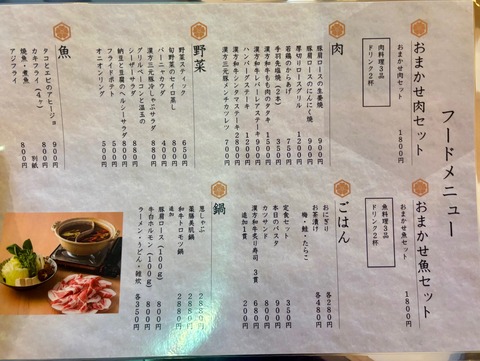 フードメニュー
おまかせ肉セット
おまかせ肉セット
1800円
肉料理3品
ドリンク2杯
おまかせ魚セット
おまかせ魚セット
1800円
魚料理3品
ドリンク2杯
肉
豚肩ロースの生姜焼 900円
豚肩ロースのにんにく焼 900円
厚切りロースグリル
若鶏のからあげ 750円
手羽先塩焼(2本) 350円
漢方和牛もも肉のタタキ
漢方和牛レバーレアステーキ
ハンバーグステーキ 1200円
漢方和牛メンチカツ
漢方三元豚
野菜
野菜スティック 650円
旬野菜のセイロ蒸し
バーニャカウダ
漢方三元豚冷しゃぶサラダ
グリルベーコンと温玉の
シーザーサラダ
納豆と豆腐のヘルシーサラダ
フライドポテト 500円
オニオンリング 500円
魚
タコとエビのアヒージョ 900円
カキフライ(4ヶ) 800円
焼魚・煮魚 別紙
アジフライ 800円
ごはん
おにぎり 各280円
お茶漬け 各480円
梅・鮭・たらこ
定食セット 350円
本日のパスタ 900円
カツサンド 800円
漢方和牛炙り寿司 3貫 680円
追加1貫 200円
鍋
葱しゃぶ 2880円
薬膳美肌鍋 2880円
和牛トロモツ鍋 2880円
追加
豚肩ロース(100g) 800円
牛白ホルモン(100g) 800円
ラーメン・うどん・雑炊 各350円